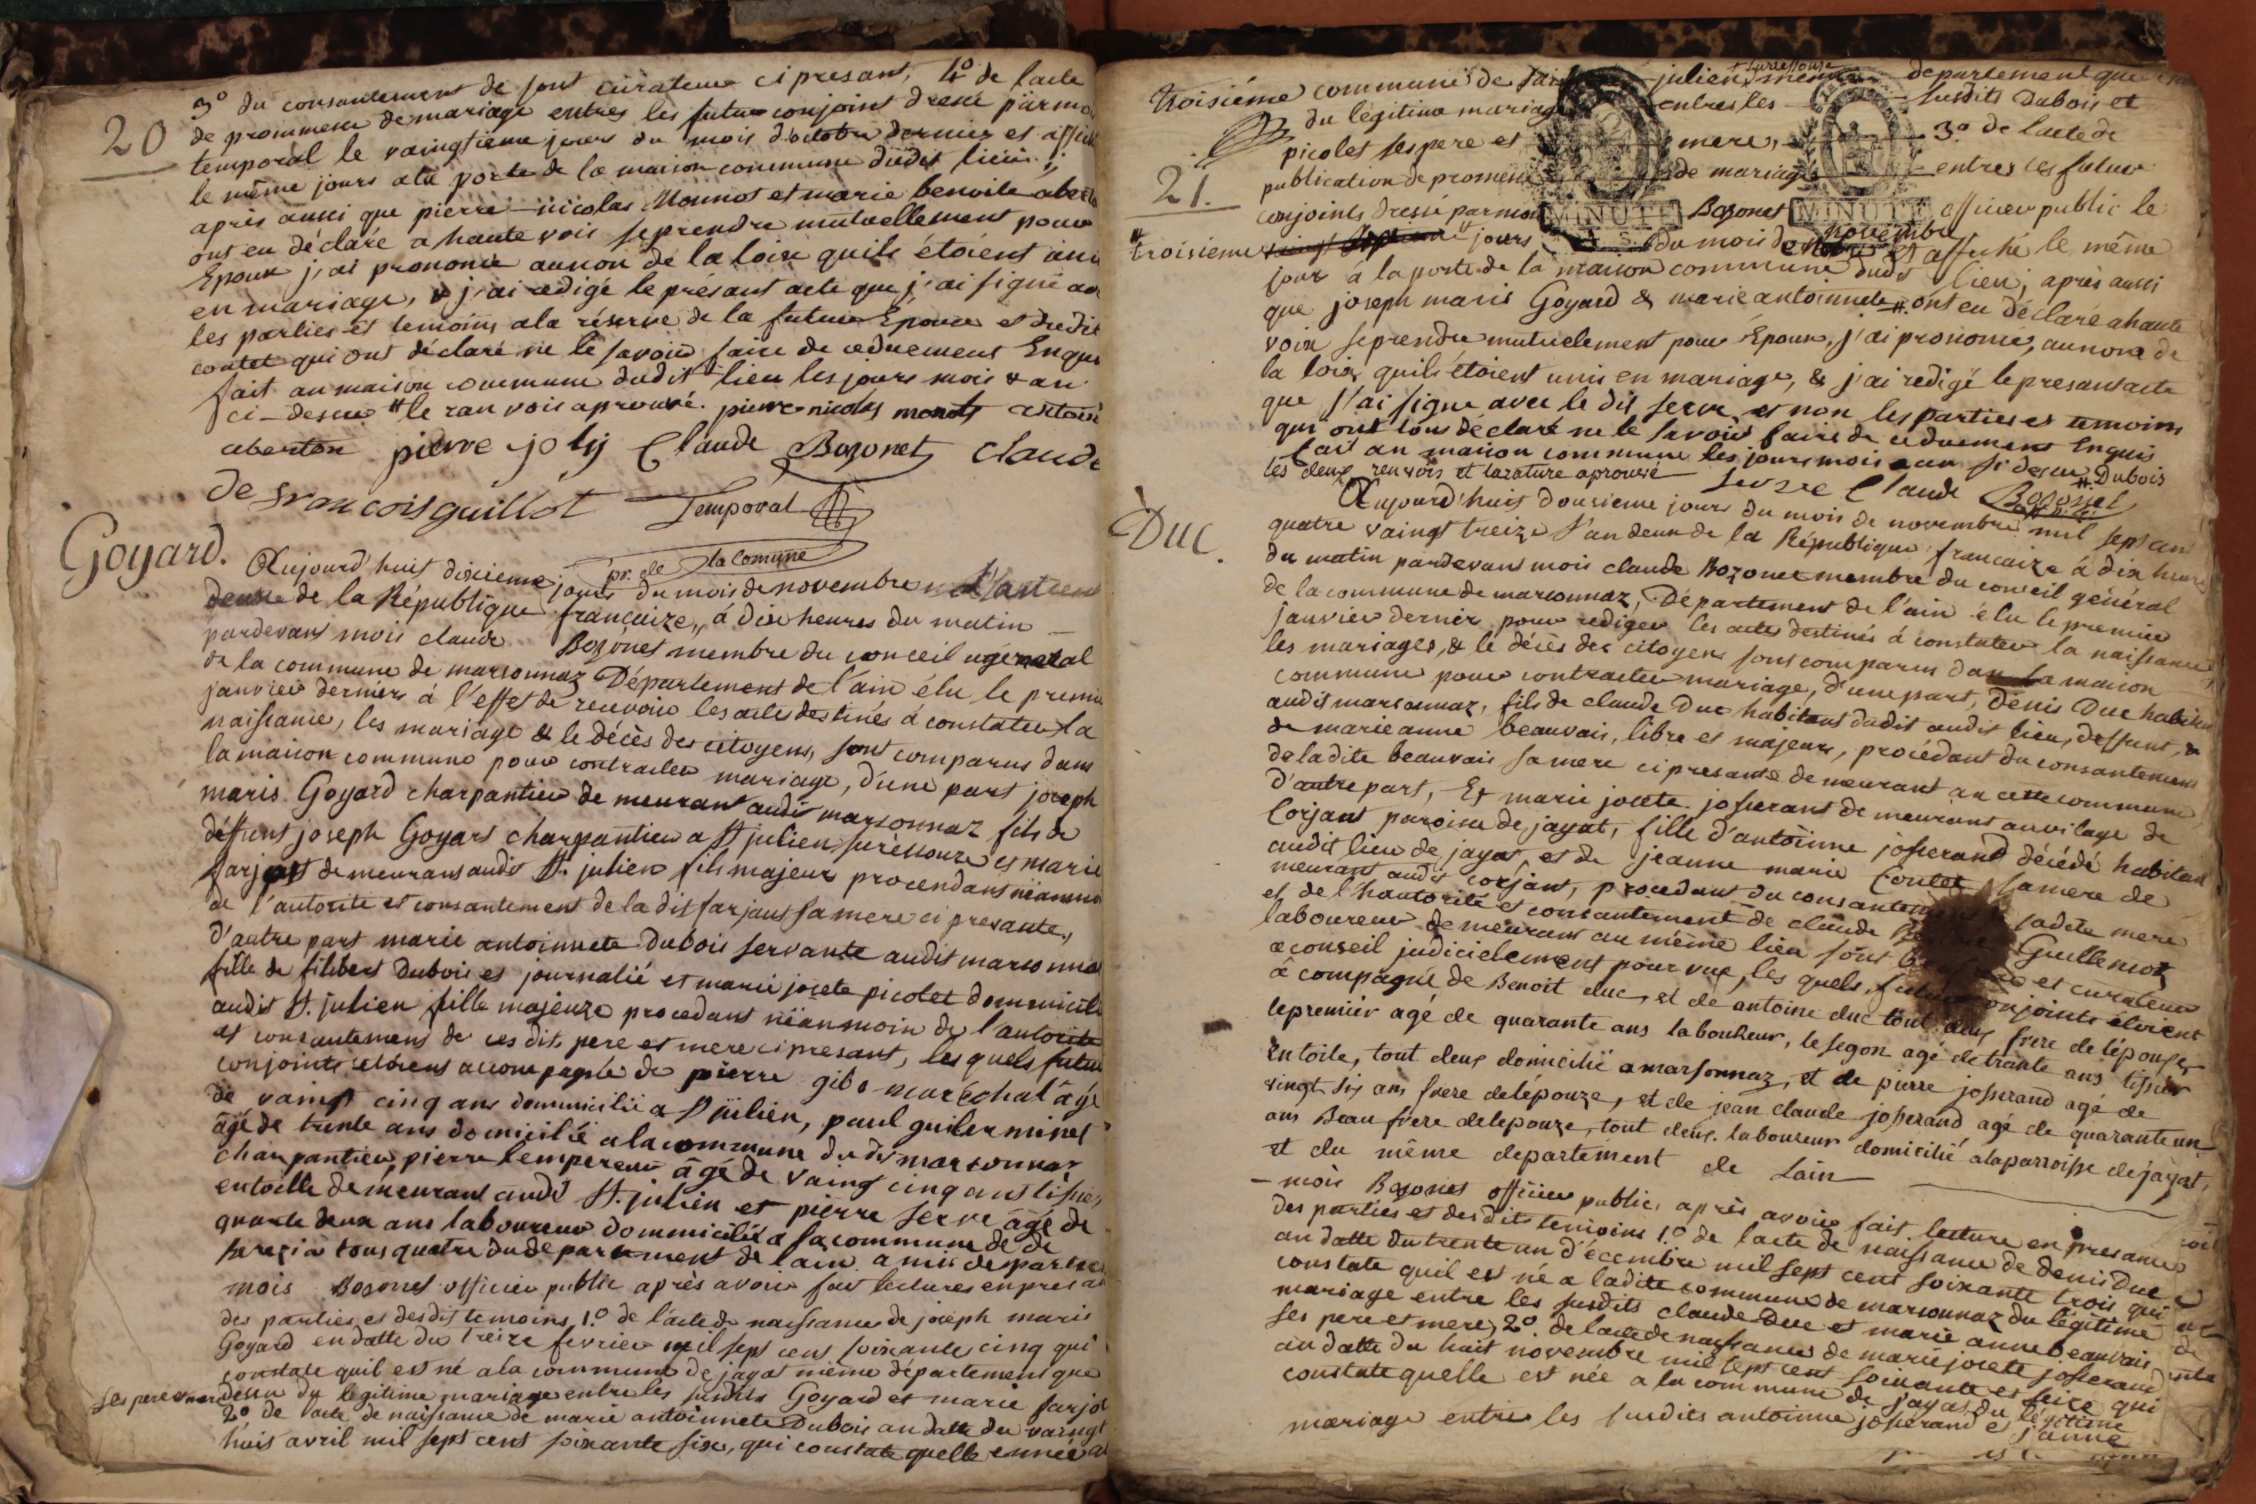 20
3º du consantement de sont curateur ci presant, 4º de lacte
de prommesse de mariage entres les futur conjoint dressé parmoi
temporal le vaingtieme jours du mois doctobre dernier et affiché
le même jours ala porte de la maison commune dudit lieu;
après aussi que pierre nicolas Monnot et marie benoite
ont eu déclaré a haute vois se prendre mutuellement pour
Epoux j'ai prononcé aunon de la loix quils étoient uni
en mariage, & j'ai redigé le présant acte que j'ai signé avec
les parties et temoins ala réserve de la future Epouse et dudit
coutet qui ont déclaré ne le savoir faire de ceduement Enquis
fait au maison commune dudit lieu les jours mois & an
ci-dessus # le ranvois aprouvé. pierre nicolas monots antoine
pierre joly Claude Bozonet Claude
de francois guillot Temporal
pr. de la Comune
Goyard.
Aujourd'huit dixieme jours du mois de novembre
de la République francaize, á dix heures du matin
pardevans mois claude Bozonet membre du conceil ugeneral
de la commune de marsonnaz Département de l'ain élu le premier
janvier derniers á l'effet de recevoir les actes destinés á constater la
naissance, les mariage & le Décès des citoyens, sont comparus dans
la maison commune pour contracter mariage, d'une part joseph
maris Goyard charpantier de meurant audit marsonnaz fils de
déffunt joseph Goyard charpantier a St julien sur essouze et marie
farjant demeurans audit St. julien fils majeur procendans néanmoin
de l'autorité et consantement de la dit farjant sa mere ci presante,
d'autre part marie antoinnete Dubois servante audit marsonnas
fille de filibert Dubois et journalié et marie josete picolet dommicilié
audit St. julien fille majeure procedant néanmoin de l'autorité
et consantement de ces dits pere et mere ci presant, les quels futur
conjoints étoient accompagnée de pierre gibo maréchal âgé
de vaingt cinq ans dommicilié a St julien, paul guilerminet
âgé de trente ans domicilié ala commune dudit marsonnaz
charpantier, pierre lempereur âgé de vaingt cinq ans tissier
entoille demeurant audit St. julien et pierre serve âgé de
quarte deux ans laboureur dommicilié a sa commune de
tous quatre du departement de lain
mois Bozonet officier public après avoir fait lectures enpresance
des parties et desdit temoins 1.º de l'acte de naissance de joseph maris
Goyard en datte du treize fevrier mil sept cens soixante cinq qui
constate quil est né ala commune de jayat même département que
ses pere et mere dessu du legitime mariage entre les susdits Goyard et marie farjot
2º de l'acte de naissance de marie antoinnete Dubois an datte du vaingt
huis avril mil sept cent soixante six, qui constate quelle
troisiéme commune de saint julien sur essouze même departement que
du légitime mariage entres les susdits Dubois et
picolet ses pere et mere, 3º de lacte de
21.
publication de promesse de mariage entres les futur
conjoints dressé parmoi Bozonet officier public le
MINUTE MINUTE
troisieme jours du mois de novembre et affiché le même
jour a la porte de la maison commune dudit lieu; après aussi
que joseph maris Goyard & marie antoinnete # ont eu déclaré a haute
voix se prendre mutuelement pour Epoux, j'ai prononcé, aunon de
la loix, quils étoient unis en mariage, & j'ai redigé le presant acte
que j'ai signé avec le dit serve et non les parties et temoins
qui ont tous déclaré ne le savoir faire de ceduement Enquis
fait an maison commune les jours mois & an si dessu # Dubois
les deux renvois et la rature aprouvé serve Claude Bozonet
Duc.
Aujourd'huit dousieme jours du mois de novembre mil sept cens
quatre vaingt treize l'an deux de la République francaize á dix heure
du matin pardevant mois claude Bozonet membre du conseil général
de la commune de marsonnaz, Département de l'ain élu le premier
janvier dernier pour rediger les actes destinés á constater la naissance
les mariages, & le décès des citoyens sont comparus dans la maison
commune pour contracter mariage, d'une part, Dénis Duc habitant
audit marsonnaz, fils de claude Duc habitant dudit audit lieu, deffunt, &
de marie anne beauvais, libre et majeur, procédant du consantement
de ladite beauvais sa mere ci presante demeurant an cette commune
D'autre part, Et marie josete josserant demeurant au vilage de
Corjant paroisse de jayat, fille d'antoinne josserand décédé habitant
audit lieu de jayat, et de jeanne marie Coutet sa mere de
meurant audit corjant, procedant du consantement sadete mere
et de l'hautorité et consantement de claude Guillemot
laboureur demeurant au même lieu sont et curateur
a conseil judicielement pour vue, les quels futurs conjoints étoient
à compagné de Benoit duc, et de antoine duc tout deux frere de lépouse,
le premier agé de quarante ans laboureur, le segon agé de trante ans tissier
en toile, tout deux domicilié a marsonnaz, et de pierre josserand agé de
vingt six ans frere de lépouze, et de jean claude josserand agé de quarante un
ans Beau frere de lepouze, tout deux laboureur domicilié ala parroisse de jayat,
et du même departement de Lain
mois Bozonet officier public, après avoir fait lecture en presance
des parties et desdits temoins 1.º de lacte de naissance de denis Duc
an datte du trente un d'écembre mil sept cent soixante trois qui
constate quil est né a ladite commune de marsonnaz du légitime
mariage entre les susdits claude Duc et marie anne beauvais
ses pere et mere, 2º. de lacte de naissance de marie josete josserand
an datte du huit novembre mil sept cens soixante et seize qui
constate quelle est née a la commune de jayat du légitime
mariage entre les susdits antoinne josserand et jeanne